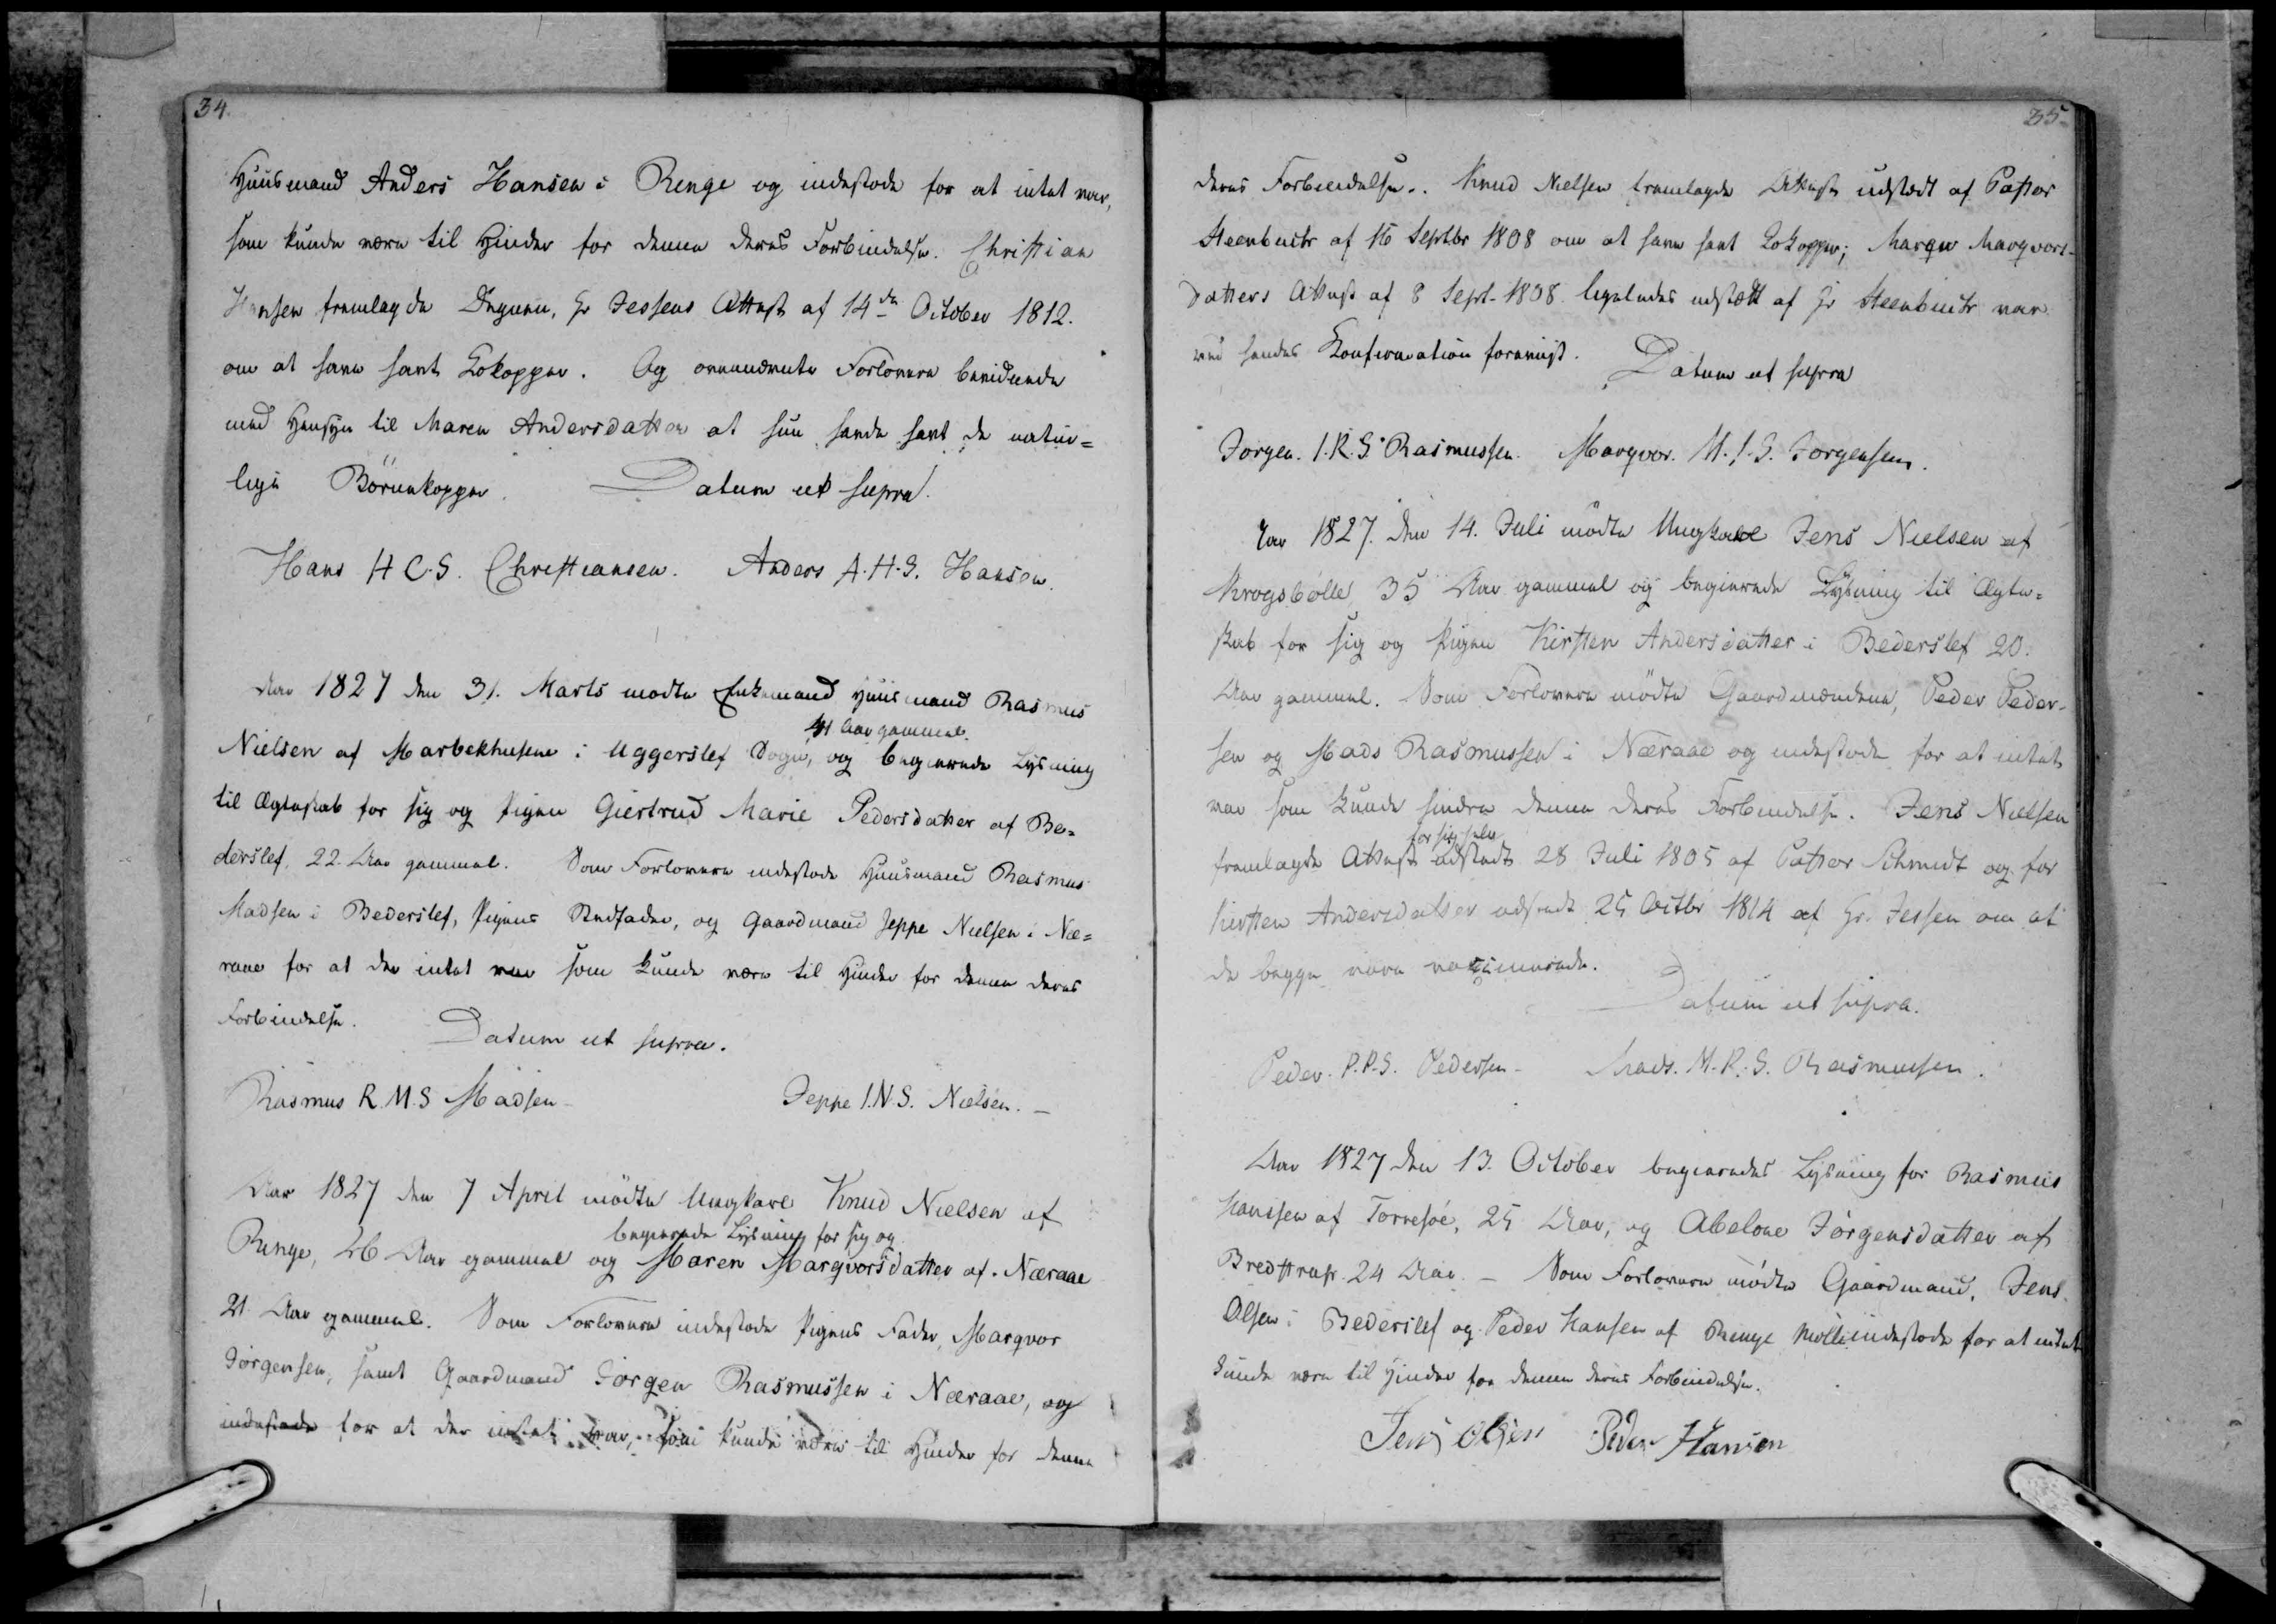 34.
Huusmand Anders Hansen i Ringe og indestode for at intet var,
som kunde være til Hinder for denne deres Forbindelse. Christian
Hansen fremlagde Degnen, Hr Jessens Attest af 14de October 1812.
om at have havt Kokopper. Og ovennævnte Forlovere bevidnede
med Hensyn til Maren Andersdatter at hun havde havt de natur=
lige Börnekopper. Datum ut supra.
Hans H C. S. Christiansen. Anders A. H. S. Hansen.
Aar 1827 den 31. Marts mødte Enkemand Huusmand Rasmus
41 Aar gammel.
Nielsen af Marbekhusene i Uggerslef Sogn, og begierede Lysning
til Ægteskab for sig og Pigen Giertrud Marie Pedersdatter af Be=
derslef, 22 Aar gammel. Som Forlovere indestode Huusmand Rasmus
Madsen i Bederslef, Pigens Stedfader, og Gaardmand Jeppe Nielsen i Næ=
raae for at der intet var som kunde være til Hinder for denne deres
Forbindelse. Datum ut supra.
Rasmus R. M. S Madsen Jeppe I. N. S. Nielsen. –
Aar 1827 den 7 April mödte Ungkarl Knud Nielsen af
begierede Lysning for sig og
Ringe, 26 Aar gammel og Maren Marqvorsdatter af Næraae
21 Aar gammel. Som Forlovere indestode Pigens Fader, Marqvor
Jörgensen, samt Gaardmand Jörgen Rasmussen i Næraae, og
indestode for at der intet var, som kunde være til Hinder for denne
35.
deres Forbindelse. Knud Nielsen fremlagde Attest udstædt af Pastor
Steenbuch af 16 Septbr 1808 om at have havt Kokopper; Maren Marqvors-
datters Attest af 8 Sept. 1808 ligeledes udstædt af Hr Steenbuch var
ved hendes Konfirmation foreviist. Datum ut supra
Jørgen. I. R. S. Rasmussen. Marqvor. M. I. S. Jorgensen.
Aar 1827. den 14. Juli mödte Ungkarl Jens Nielsen af
Krogsbölle 35 Aar gammel og begierede Lysning til Ægte=
skab for sig og Pigen Kirsten Andersdatter i Bederslef 20.
Aar gammel. Som Forlovere mödte Gaardmændene, Peder Peder-
sen og Mads Rasmussen i Næraae og indestode for at intet
var som kunde hindre denne deres Forbindelse. Jens Nielsen
for sig selv
fremlagde Attest udstædt 28 Juli 1805 af Pastor Schmidt og for
Kirsten Andersdatter udstædt 25 Octbr 1814 af Hr. Jessen om at
de begge vare vaccinerede.
Datum ut supra.
Peder. P. P. S. Pedersen – Mads. M. R. S. Rasmussen.
Aar 1827 den 13. October begieredes Lysning for Rasmus
Hanssen af Torresöe, 25 Aar, og Abelone Jörgensdatter af
Bredstrup 24 Aar. – Som Forlovere mödte Gaardmand, Jens
Olsen i Bederslef og Peder Hansen af Ringe Mölle indestode for at intet
kunde være til Hinder for denne deres Forbindelse.
Jens Olsen Peder Hansen